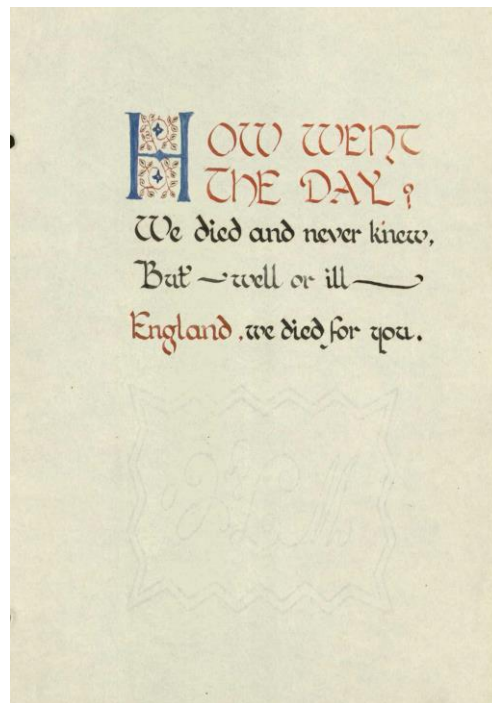 HOW WENT
THE DAY?
We died and never knew,
But — well or ill —
England, we died for you.